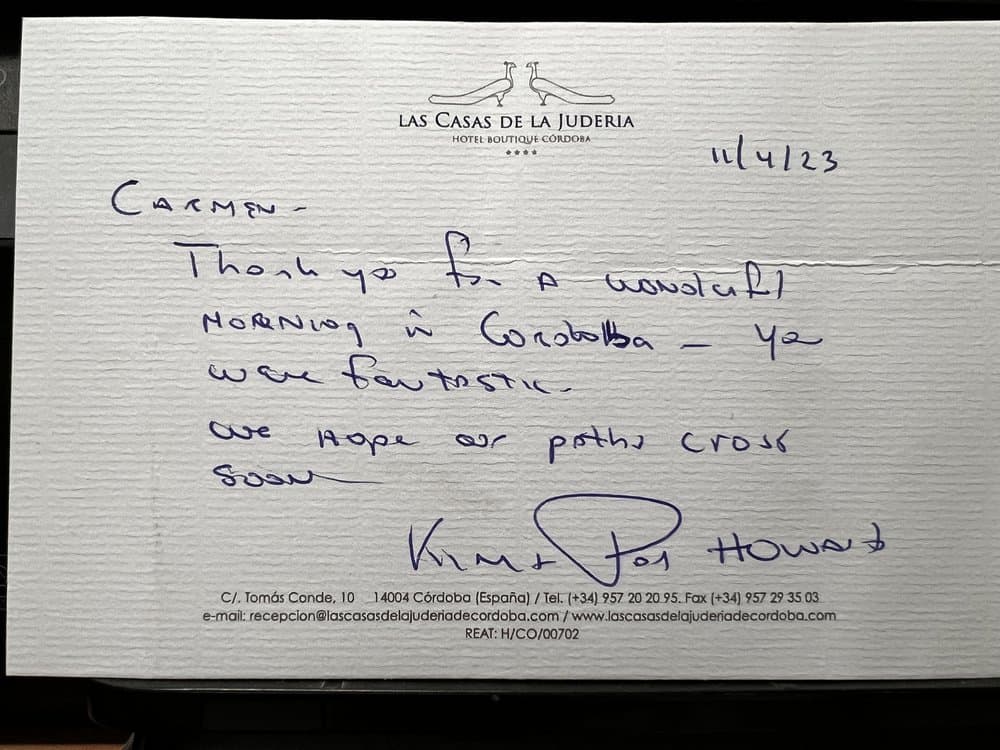 LAS CASAS DE LA JUDERIA
HOTEL BOUTIQUE CÓRDOBA
11/4/23
CARMEN -
Thank you for A wonderful
MORNING in Cordobba - you
were fantastic -
We Hope our paths cross
soon
Kim + HOWARD
C/. Tomás Conde, 10 14004 Córdoba (España) / Tel. (+34) 957 20 20 95. Fax (+34) 957 29 35 03
e-mail: recepcion@lascasasdelajuderiadecordoba.com / www.lascasasdelajuderiadecordoba.com
REAT: H/CO/00702